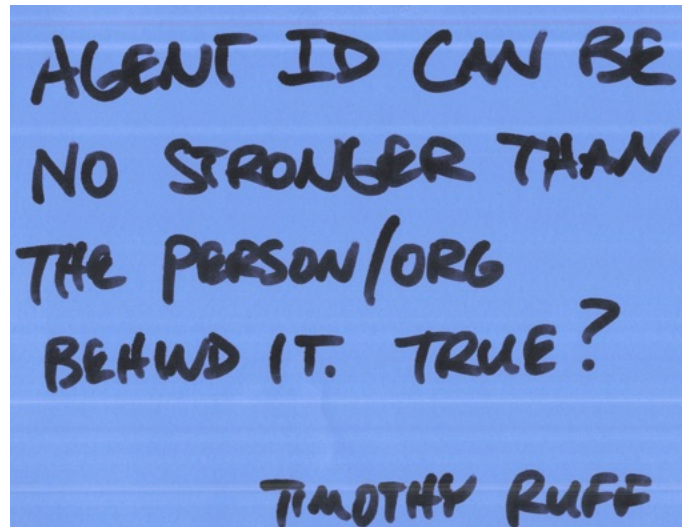 AGENT ID CAN BE
NO STRONGER THAN
THE PERSON/ORG
BEHIND IT. TRUE?
TIMOTHY RUFF